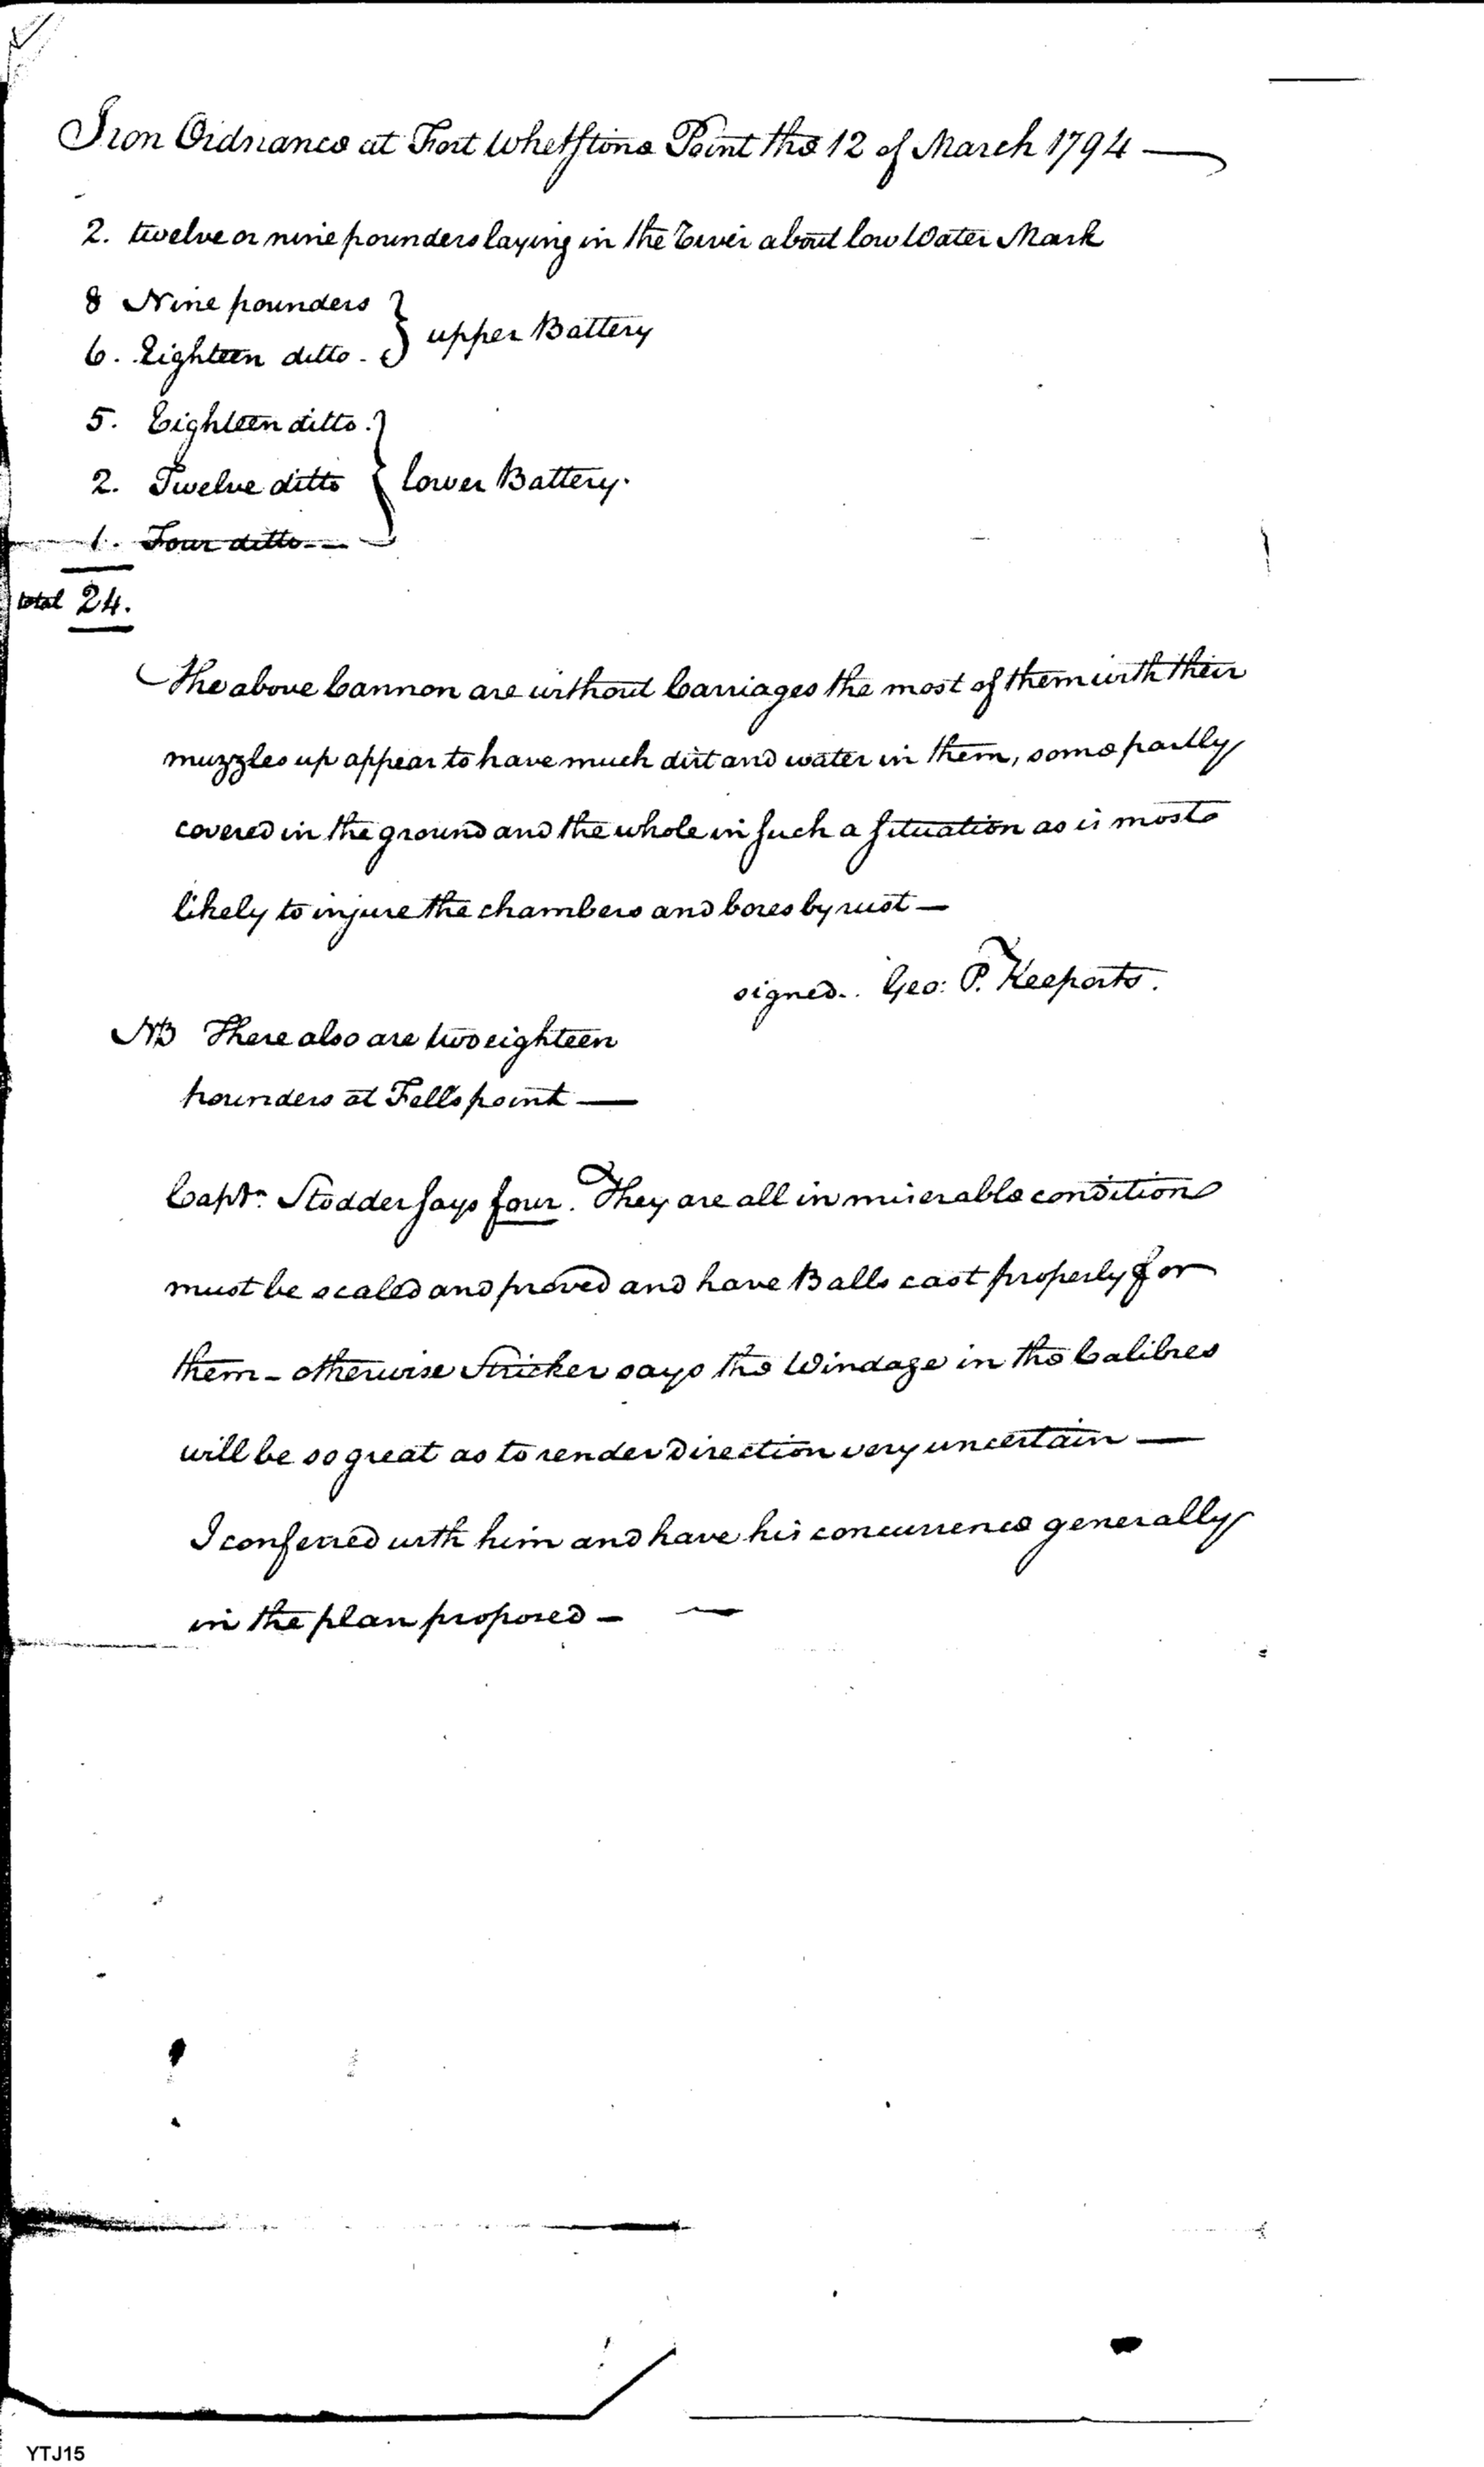 Iron Ordnance at Fort Whetstone Point the 12 of March 1794 —
2. twelve or nine pounders laying in the River about low Water Mark
8 Nine pounders
6. Eighteen ditto - } upper Battery
5. Eighteen ditto.
2. Twelve ditto } lower Battery.
1. Four ditto --
total 24.
The above Cannon are without Carriages the most of them with their
muzzles up appear to have much dirt and water in them, some partly
covered in the ground and the whole in such a situation as is most
likely to injure the chambers and bores by rust —
signed.. Geo: P. Keeports.
NB There also are two eighteen
pounders at Fells point —
Captn. Stodder says four. They are all in miserable condition
must be scaled and proved and have Balls cast properly for
them - otherwise Stricker says the Windage in the Calibres
will be so great as to render Direction very uncertain —
I conferred with him and have his concurrence generally
in the plan proposed - —
YTJ15